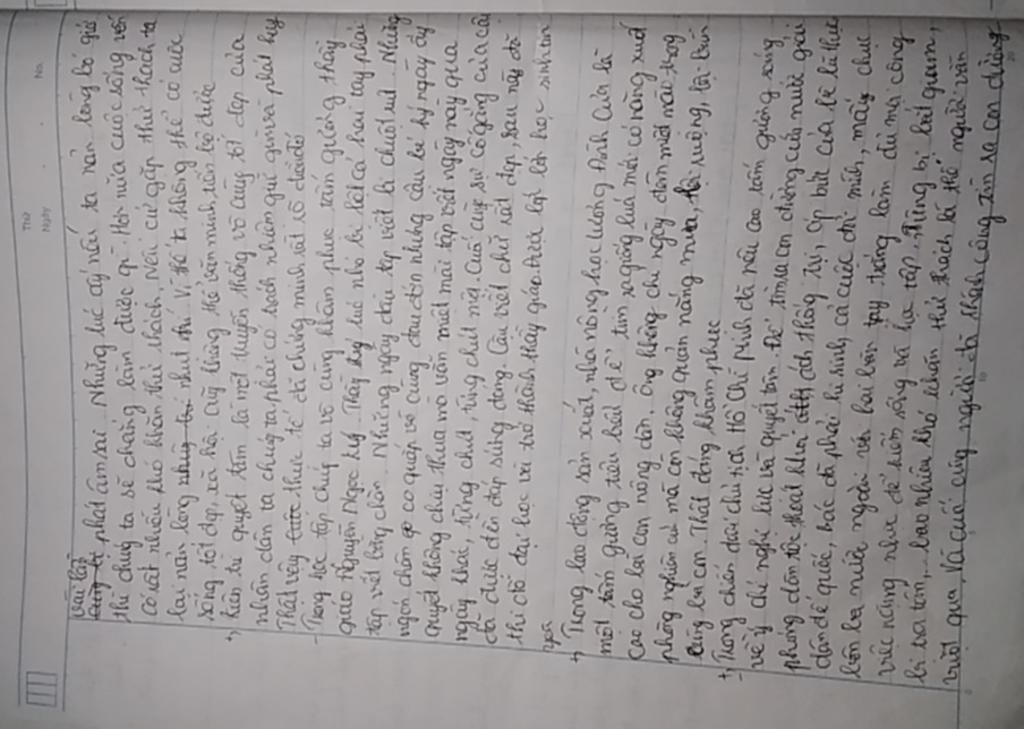 Thứ
Ngày
No.
vấp lắp phát âm sai. Những lúc ấy nếu ta nản lòng bỏ giở
thì chúng ta sẽ chẳng làm được gì. Hơn nữa cuộc sống vốn
có rất nhiều khó khăn thử thách, nếu cứ gặp thử thách ta
lại nản lòng như thế. Vì thế ta không thể có cuộc
sống tốt đẹp, xã hội cũng không thể văn minh, tiến bộ được
+, kiên trì quyết tâm là một truyền thống vô cùng tốt đẹp của
nhân dân ta chúng ta phải có trách nhiệm giữ gìn và phát huy
Thật vậy thực tế đã chứng minh rất rõ điều đó
- Trong học tập chúng ta vô cùng khâm phục tấm gương thầy
giáo Nguyễn Ngọc Ký. Thầy ký lúc nhỏ bị liệt cả hai tay phải
tập viết bằng chân. Những ngày đầu tập viết bị chuột rút. Những
ngón chân co quắp vô cùng đau đớn nhưng cậu bé ký ngày ấy
quyết không chịu thua mà vẫn miệt mài tập viết ngày này qua
ngày khác, từng chút, từng chút một. Cuối cùng sự cố gắng của cậu
đã được đền đáp xứng đáng. Cậu viết chữ rất đẹp, sau này đã
thi đỗ đại học và trở thành thầy giáo được lớp lớp học sinh tôn
+, Trong lao động sản xuất, nhà nông học Lương Định Của là
một tấm gương tiêu biểu để tìm ra giống lúa mới có năng xuất
cao cho bà con nông dân. Ông không chỉ ngày đêm miệt mài trong
phòng nghiên cứ mà còn không quản nắng mưa, lội ruộng,
cùng bà con. Thật đáng khâm phục
+, Trong chiến đấu chủ tịch Hồ Chí Minh đã nêu cao tấm gương sáng
về ý chí nghị lực và quyết tâm. Để tìm ra con đường cứu nước giải
phóng dân tộc thoát khỏi ách thống trị, áp bức của bè lũ thực
dân đế quốc, bác đã phải hi sinh cả cuộc đời mình, mấy chục
bôn ba nước ngoài với hai bàn tay trắng làm đủ mọi công
việc nặng nhọc để kiếm sống và học tập. Từng bị bắt giam,
bị tra tấn,... bao nhiêu khó khăn thử thách là thế người vẫn
vượt qua. Và cuối cùng người đã thành công tìm ra con đường